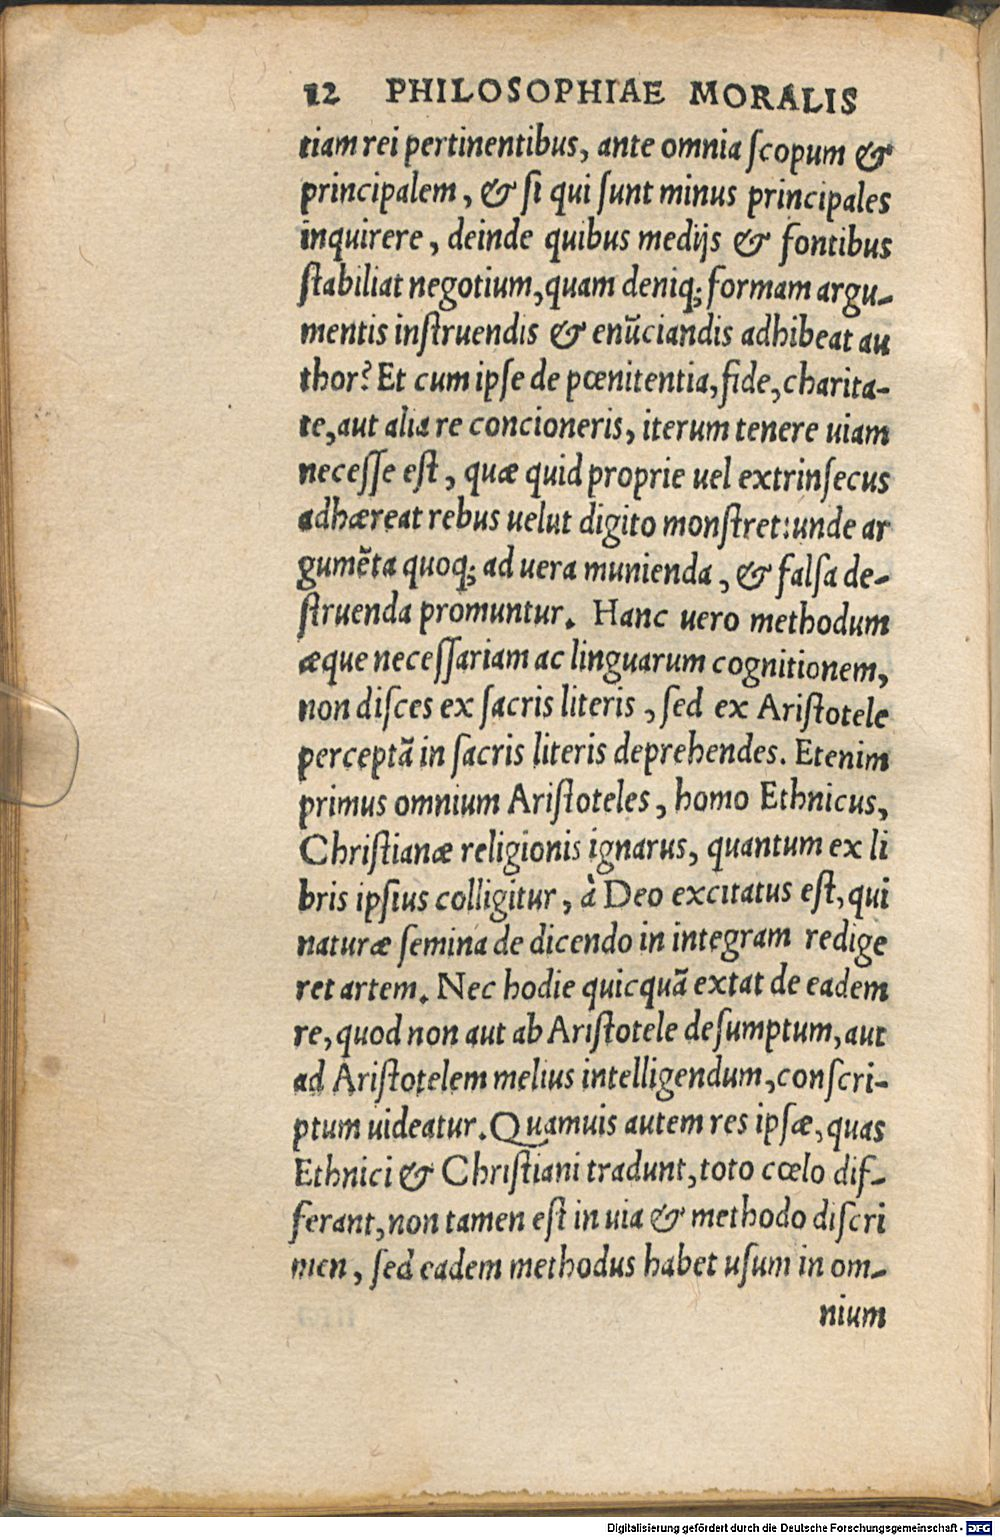 12 PHILOSOPHIAE MORALIS
tiam rei pertinentibus, ante omnia ſcopum &
principalem, & ſi qui ſunt minus principales
inquirere, deinde quibus medijs & fontibus
ſtabiliat negotium, quam deniq; formam argu-
mentis inſtruendis & enūciandis adhibeat au
thor? Et cum ipſe de pœnitentia, fide, charita-
te, aut alia re concioneris, iterum tenere uiam
neceſſe eſt, quæ quid proprie uel extrinſecus
adhæreat rebus uelut digito monſtret: unde ar
gumēta quoq; ad uera munienda, & falſa de-
ſtruenda promuntur. Hanc uero methodum
æque neceſſariam ac linguarum cognitionem,
non diſces ex ſacris literis, ſed ex Ariſtotele
perceptā in ſacris literis deprehendes. Etenim
primus omnium Ariſtoteles, homo Ethnicus,
Chriſtianæ religionis ignarus, quantum ex li
bris ipſius colligitur, à Deo excitatus eſt, qui
naturæ ſemina de dicendo in integram redige
ret artem. Nec hodie quicquā extat de eadem
re, quod non aut ab Ariſtotele deſumptum, aut
ad Ariſtotelem melius intelligendum, conſcri-
ptum uideatur. Quamuis autem res ipſæ, quas
Ethnici & Chriſtiani tradunt, toto cœlo dif-
ferant, non tamen eſt in uia & methodo diſcri
men, ſed eadem methodus habet uſum in om-
nium
Digitalisierung gefördert durch die Deutsche Forschungsgemeinschaft - DFG